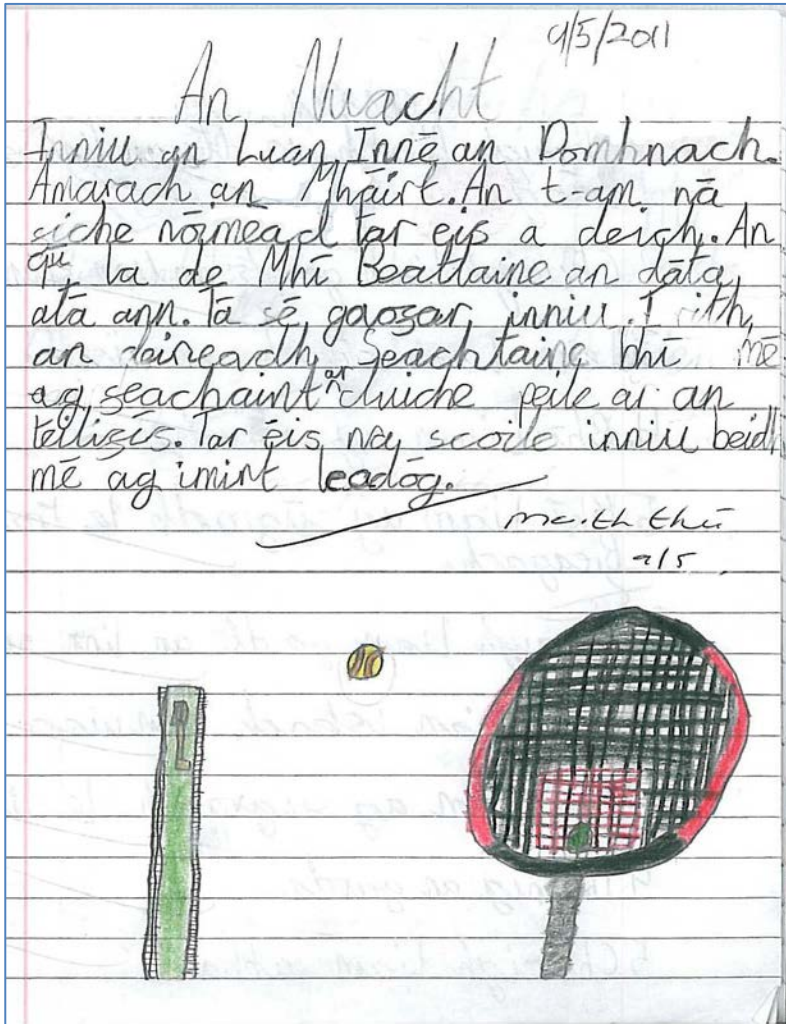 9/5/2011
An Nuacht
Inniu an Luan. Inné an Domhnach.
Amarach an Mháirt. An t-am ná
fiche nóiméad tar eis a deich. An
9ú la de Mhí Bealtaine an dáta
atá ann. Tá sé gaofar inniu. I rith
an deireadh seachtaine bhí mé
ag feachaint ar cluiche peile ar an
teilifís. Tar éis na scoile inniu beidh
mé ag imirt leadóg.
maith thú
9/5